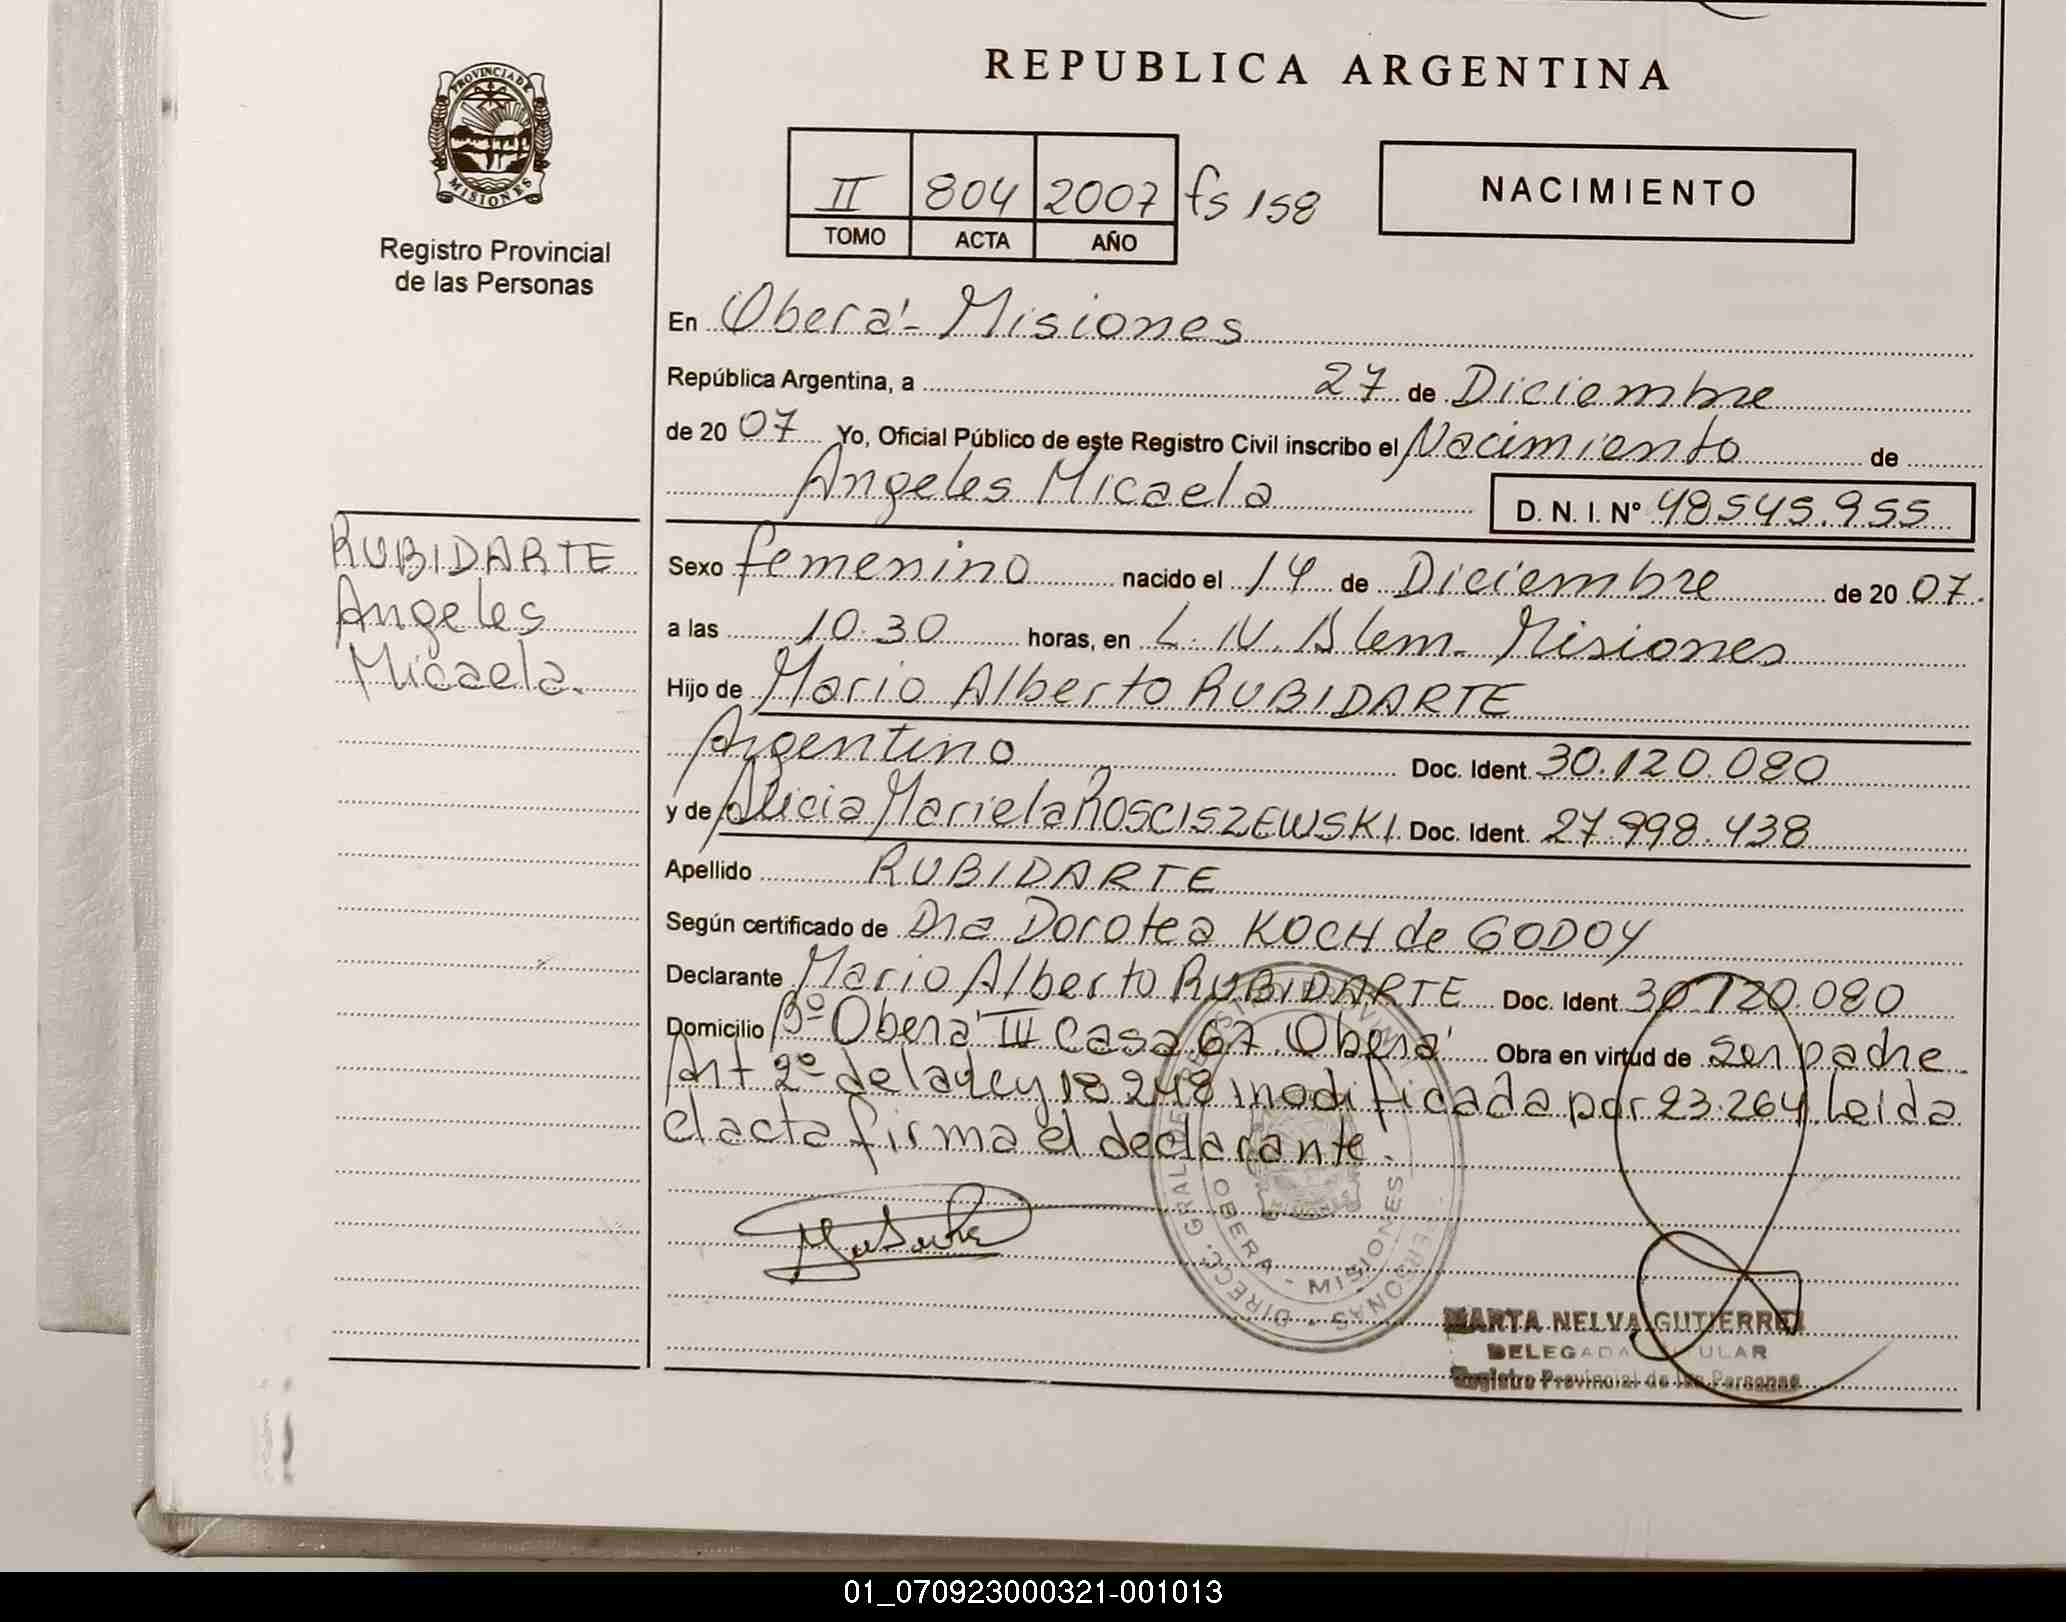 REPUBLICA ARGENTINA
PROVINCIA DE
MISIONES
Registro Provincial
de las Personas
II 804 2007 fs 158
TOMO ACTA AÑO
NACIMIENTO
En Oberá - Misiones
República Argentina, a 27 de Diciembre
de 20 07 Yo, Oficial Público de este Registro Civil inscribo el Nacimiento de
Angeles Micaela D. N. I. Nº 48545.955
RUBIDARTE
Angeles
Micaela.
Sexo femenino nacido el 14 de Diciembre de 20 07.
a las 10.30 horas, en L. N. Alem - Misiones
Hijo de Mario Alberto RUBIDARTE
Argentino Doc. Ident. 30.120.080
y de Alicia Mariela ROSCISZEWSKI Doc. Ident. 27.998.438
Apellido RUBIDARTE
Según certificado de Dra Dorotea KOCH de GODOY
Declarante Mario Alberto RUBIDARTE Doc. Ident. 30.120.080
Domicilio Bº Oberá III Casa 67. Oberá Obra en virtud de ser padre
Art 2º de la ley 18.248 modificada por 23.264. Leida
el acta firma el declarante.
OBERA - MISIONES
MARTA NELVA GUTIERREZ
DELEGADA TITULAR
Registro Provincial de las Personas
01_070923000321-001013